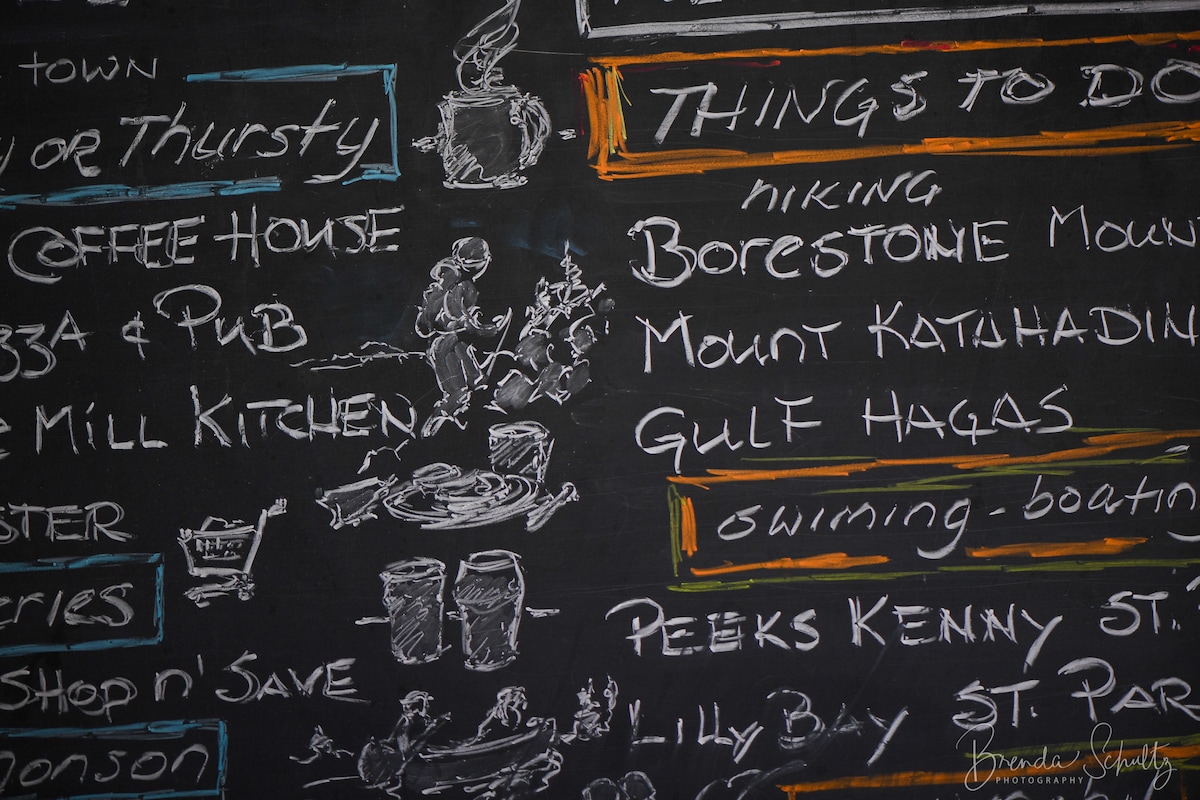 TOWN
OR Thursty
COFFEE HOUSE
& PUB
MILL KITCHEN
STER
eries
SHOP n' SAVE
onson
THINGS TO DO
HIKING
BORESTONE MOUN
MOUNT KATAHADIN
GULF HAGAS
swiming - boatin
PEEKS KENNY ST.
LILLY BAY ST. PAR
Brenda Schultz
PHOTOGRAPHY